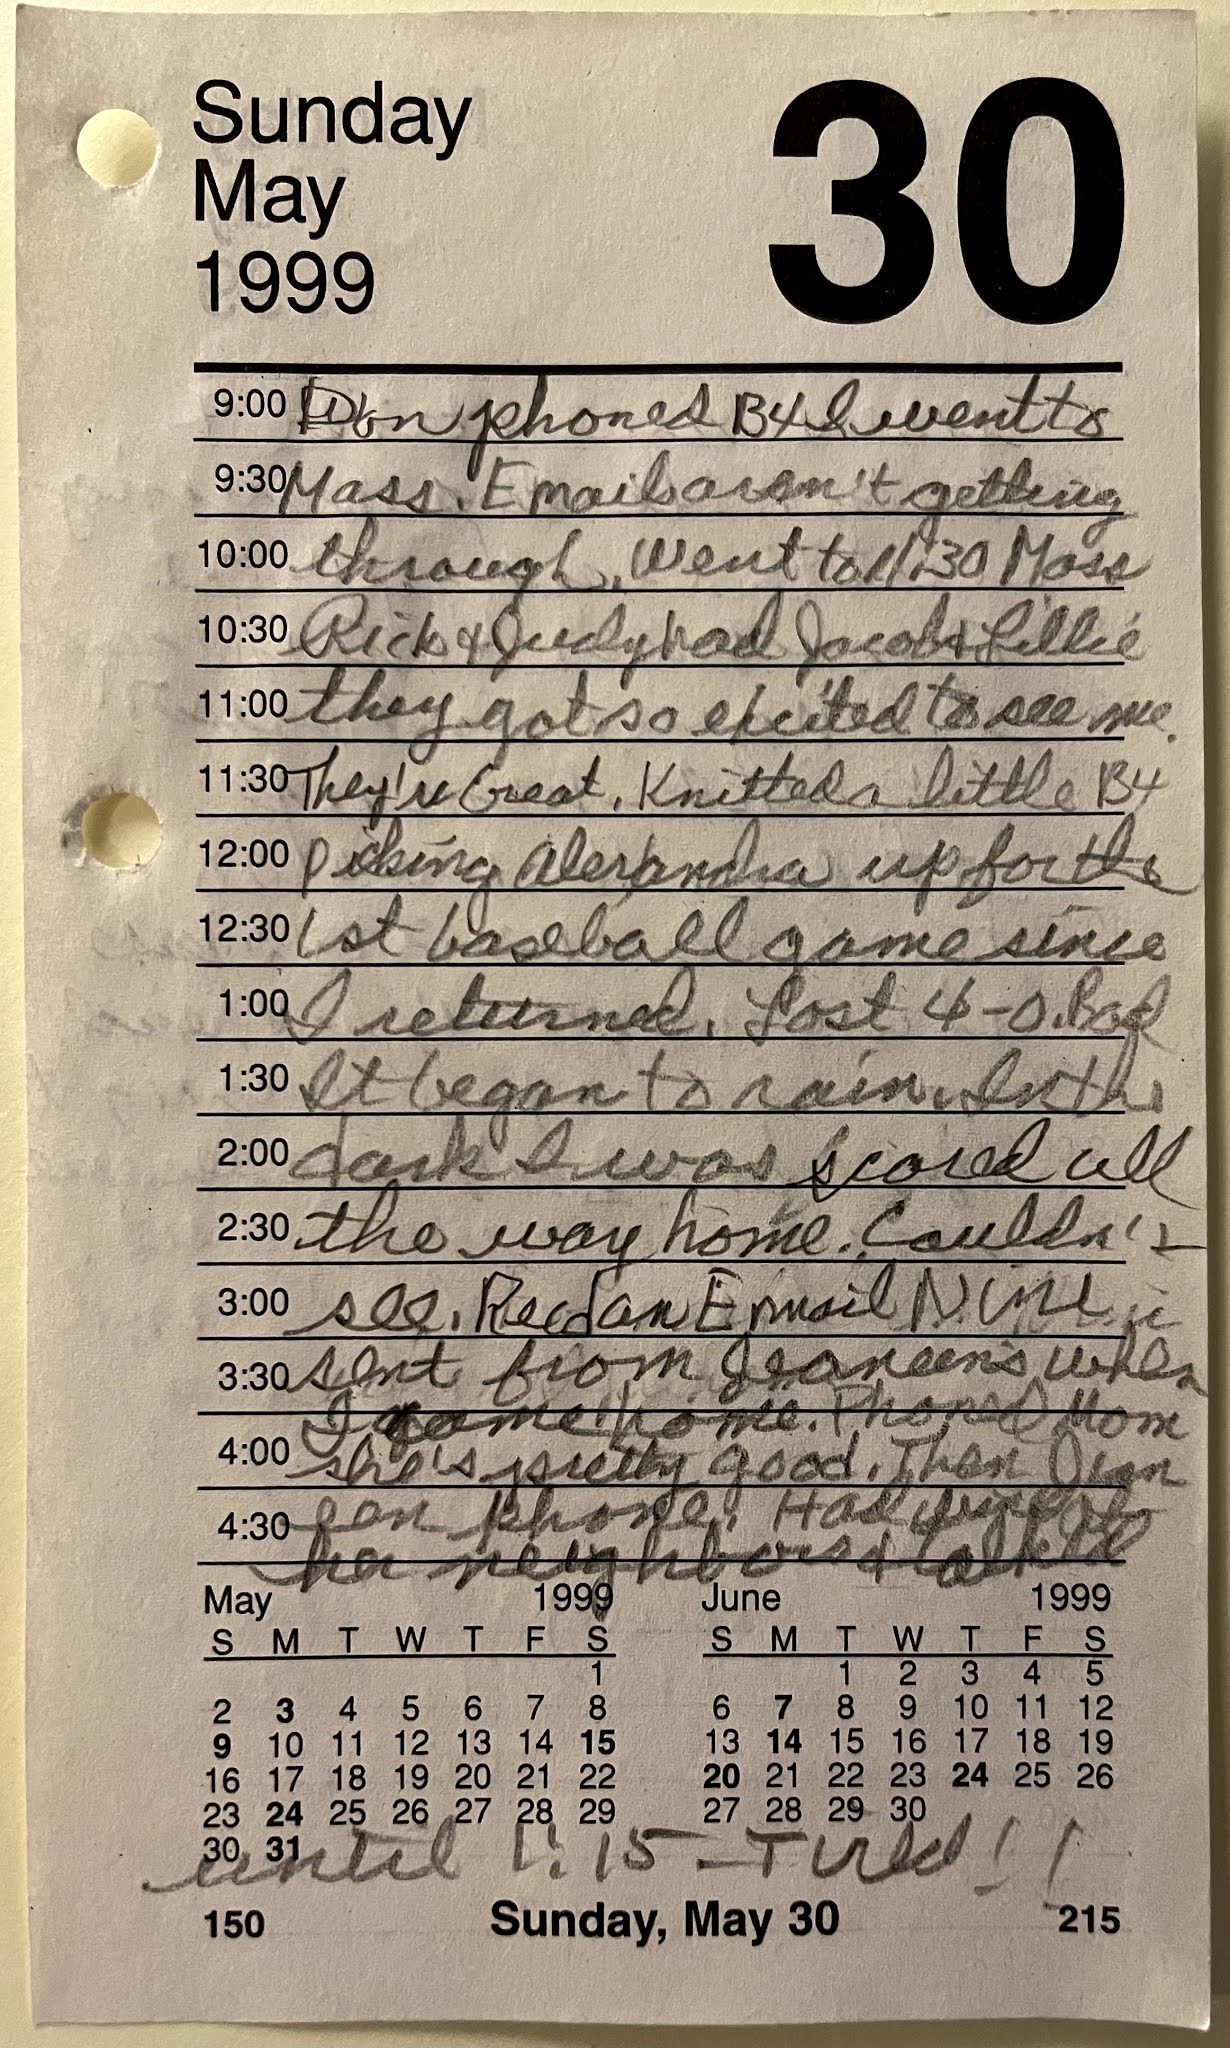 Sunday
May
1999
30
9:00 Don phoned B4 I went to
9:30 Mass. Emails aren't getting
10:00 through. Went to 11:30 Mass
10:30 Rick & Judy had Jacob & Lillie
11:00 they got so excited to see me.
11:30 They're Great. Knitted a little B4
12:00 picking Alexandra up for the
12:30 1st baseball game since
1:00 I returned. Lost 4-0. Bad
1:30 It began to rain. In the
2:00 dark I was scared all
2:30 the way home. Couldn't
3:00 see. Recd an Email
3:30 sent from Jeaneen's when
I came home. Phoned Mom
4:00 she's pretty good. Then Jean
4:30 een phone. Had
her neighbors & talked
May 1999
S M T W T F S
1
2 3 4 5 6 7 8
9 10 11 12 13 14 15
16 17 18 19 20 21 22
23 24 25 26 27 28 29
30 31
June 1999
S M T W T F S
1 2 3 4 5
6 7 8 9 10 11 12
13 14 15 16 17 18 19
20 21 22 23 24 25 26
27 28 29 30
until 1:15 - Tired!!
150 Sunday, May 30 215